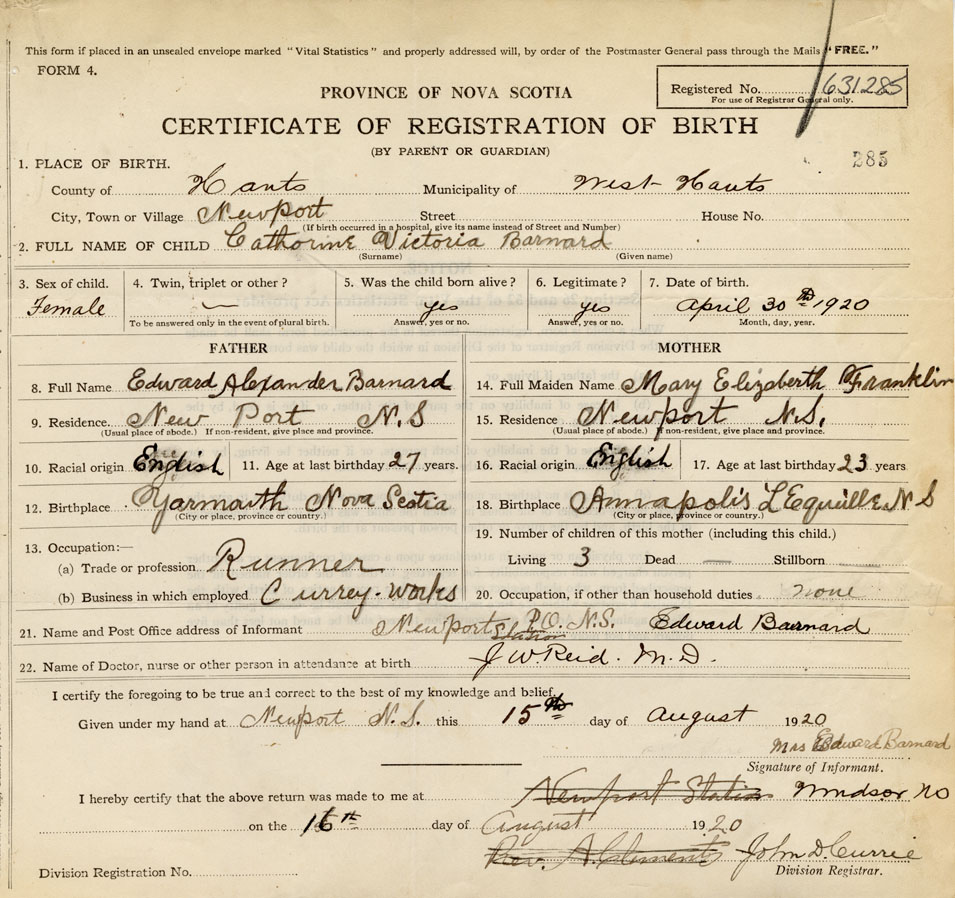 This form if placed in an unsealed envelope marked "Vital Statistics" and properly addressed will, by order of the Postmaster General pass through the Mails "FREE."
FORM 4.
Registered No. 631285
For use of Registrar General only.
PROVINCE OF NOVA SCOTIA
CERTIFICATE OF REGISTRATION OF BIRTH
(BY PARENT OR GUARDIAN)
285
1. PLACE OF BIRTH.
County of Hants Municipality of West Hants
City, Town or Village Newport Street House No.
(If birth occurred in a hospital, give its name instead of Street and Number)
2. FULL NAME OF CHILD Cathorine Victoria Barnard
(Surname) (Given name)
3. Sex of child. 4. Twin, triplet or other? 5. Was the child born alive? 6. Legitimate? 7. Date of birth.
Female — yes yes April 30th 1920
To be answered only in the event of plural birth. Answer, yes or no. Answer, yes or no. Month, day, year.
FATHER MOTHER
8. Full Name Edward Alexander Barnard 14. Full Maiden Name Mary Elizaberth Franklin
9. Residence. New Port N.S 15. Residence Newport N.S.
(Usual place of abode.) If non-resident, give place and province. (Usual place of abode.) If non-resident, give place and province.
10. Racial origin English 11. Age at last birthday 27 years. 16. Racial origin English 17. Age at last birthday 23 years
12. Birthplace Yarmauth Nova Scotia 18. Birthplace Annapolis L'Equille N S
(City or place, province or country.) (City or place, province or country.)
13. Occupation:— 19. Number of children of this mother (including this child.)
(a) Trade or profession Runner Living 3 Dead — Stillborn —
(b) Business in which employed Currey-works 20. Occupation, if other than household duties none
21. Name and Post Office address of Informant Newport Station P.O. N.S. Edward Barnard
22. Name of Doctor, nurse or other person in attendance at birth J W. Reid. M.D.
I certify the foregoing to be true and correct to the best of my knowledge and belief.
Given under my hand at Newport N.S. this 15th day of august 1920
Mrs Edward Barnard
Signature of Informant.
I hereby certify that the above return was made to me at Newport Station Windsor
on the 16th day of August 1920
Rev. A. Clements John D. Currie
Division Registration No. Division Registrar.